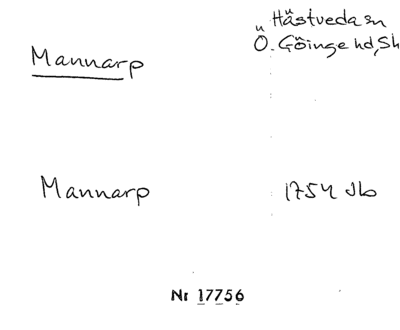 Hästveda sn
Mannarp
Ö. Göinge hd, Sk
Mannarp
1754 Jb
Nr 17756